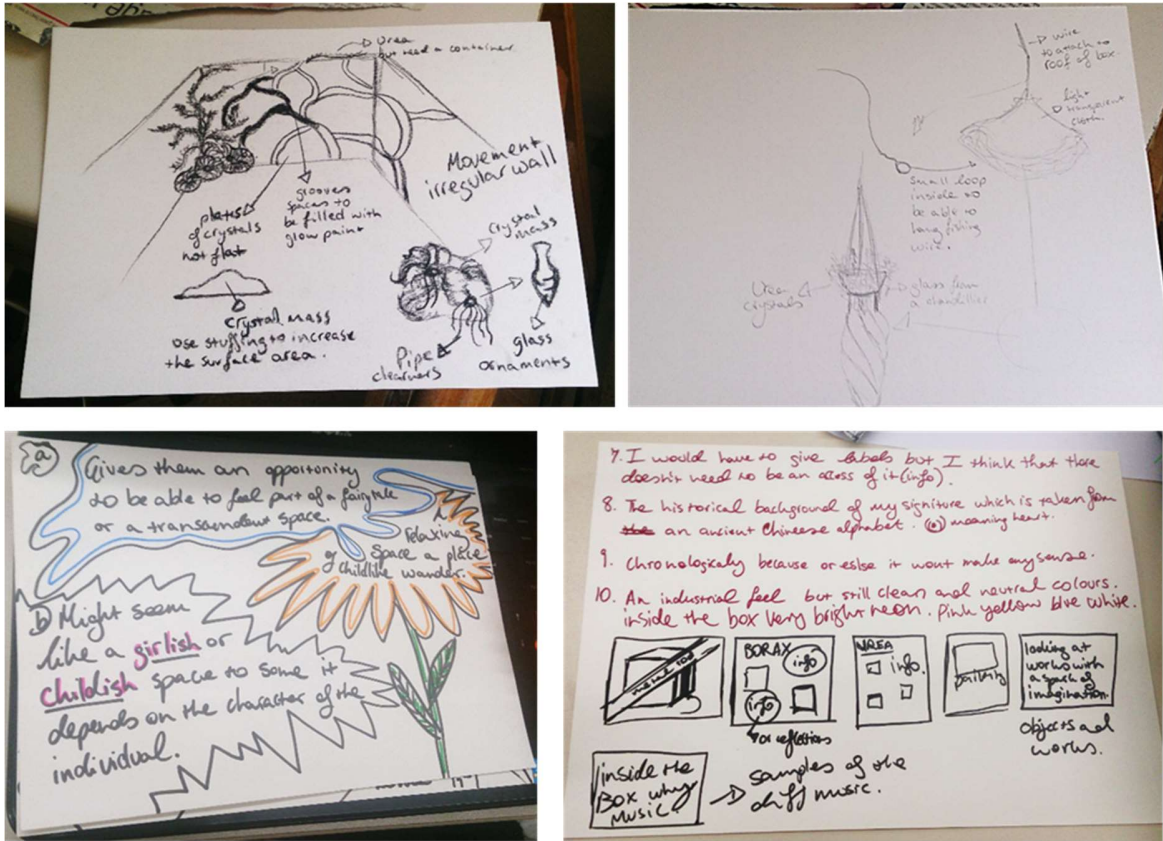 Urea
but need a container.
Movement
irregular wall
plates
of crystals
not flat
grooves
spaces to
be filled with
glow paint
crystal mass
use stuffing to increase
the surface area.
Crystal mass
Pipe
cleaners
glass
ornaments
wire
to attach to
roof of box.
light
transparent
cloth.
small loop
inside to
be able to
hang fishing
wire.
Urea
crystals
glass from
a chandilier
a
Gives them an opportunity
to be able to feel part of a fairytale
or a transcendent space.
Relaxing
space a place
of childlike wander.
b) Might seem
like a girlish or
childish space to some it
depends on the character of the
individual.
7. I would have to give labels but I think that there
doesn't need to be an access of it (info).
8. The historical background of my signiture which is taken from
an ancient Chineese alphabet. meaning heart.
9. Chronologicaly because or eslse it wont make any sense.
10. An industrial feel but still clean and neutral colours.
inside the box very bright neon. Pink yellow blue white.
BORAX
info
info
or reflections
UREA
info.
painting
looking at
works with
a spark of
imagination.
objects and
works.
inside the
Box why
Music
samples of the
diff music.